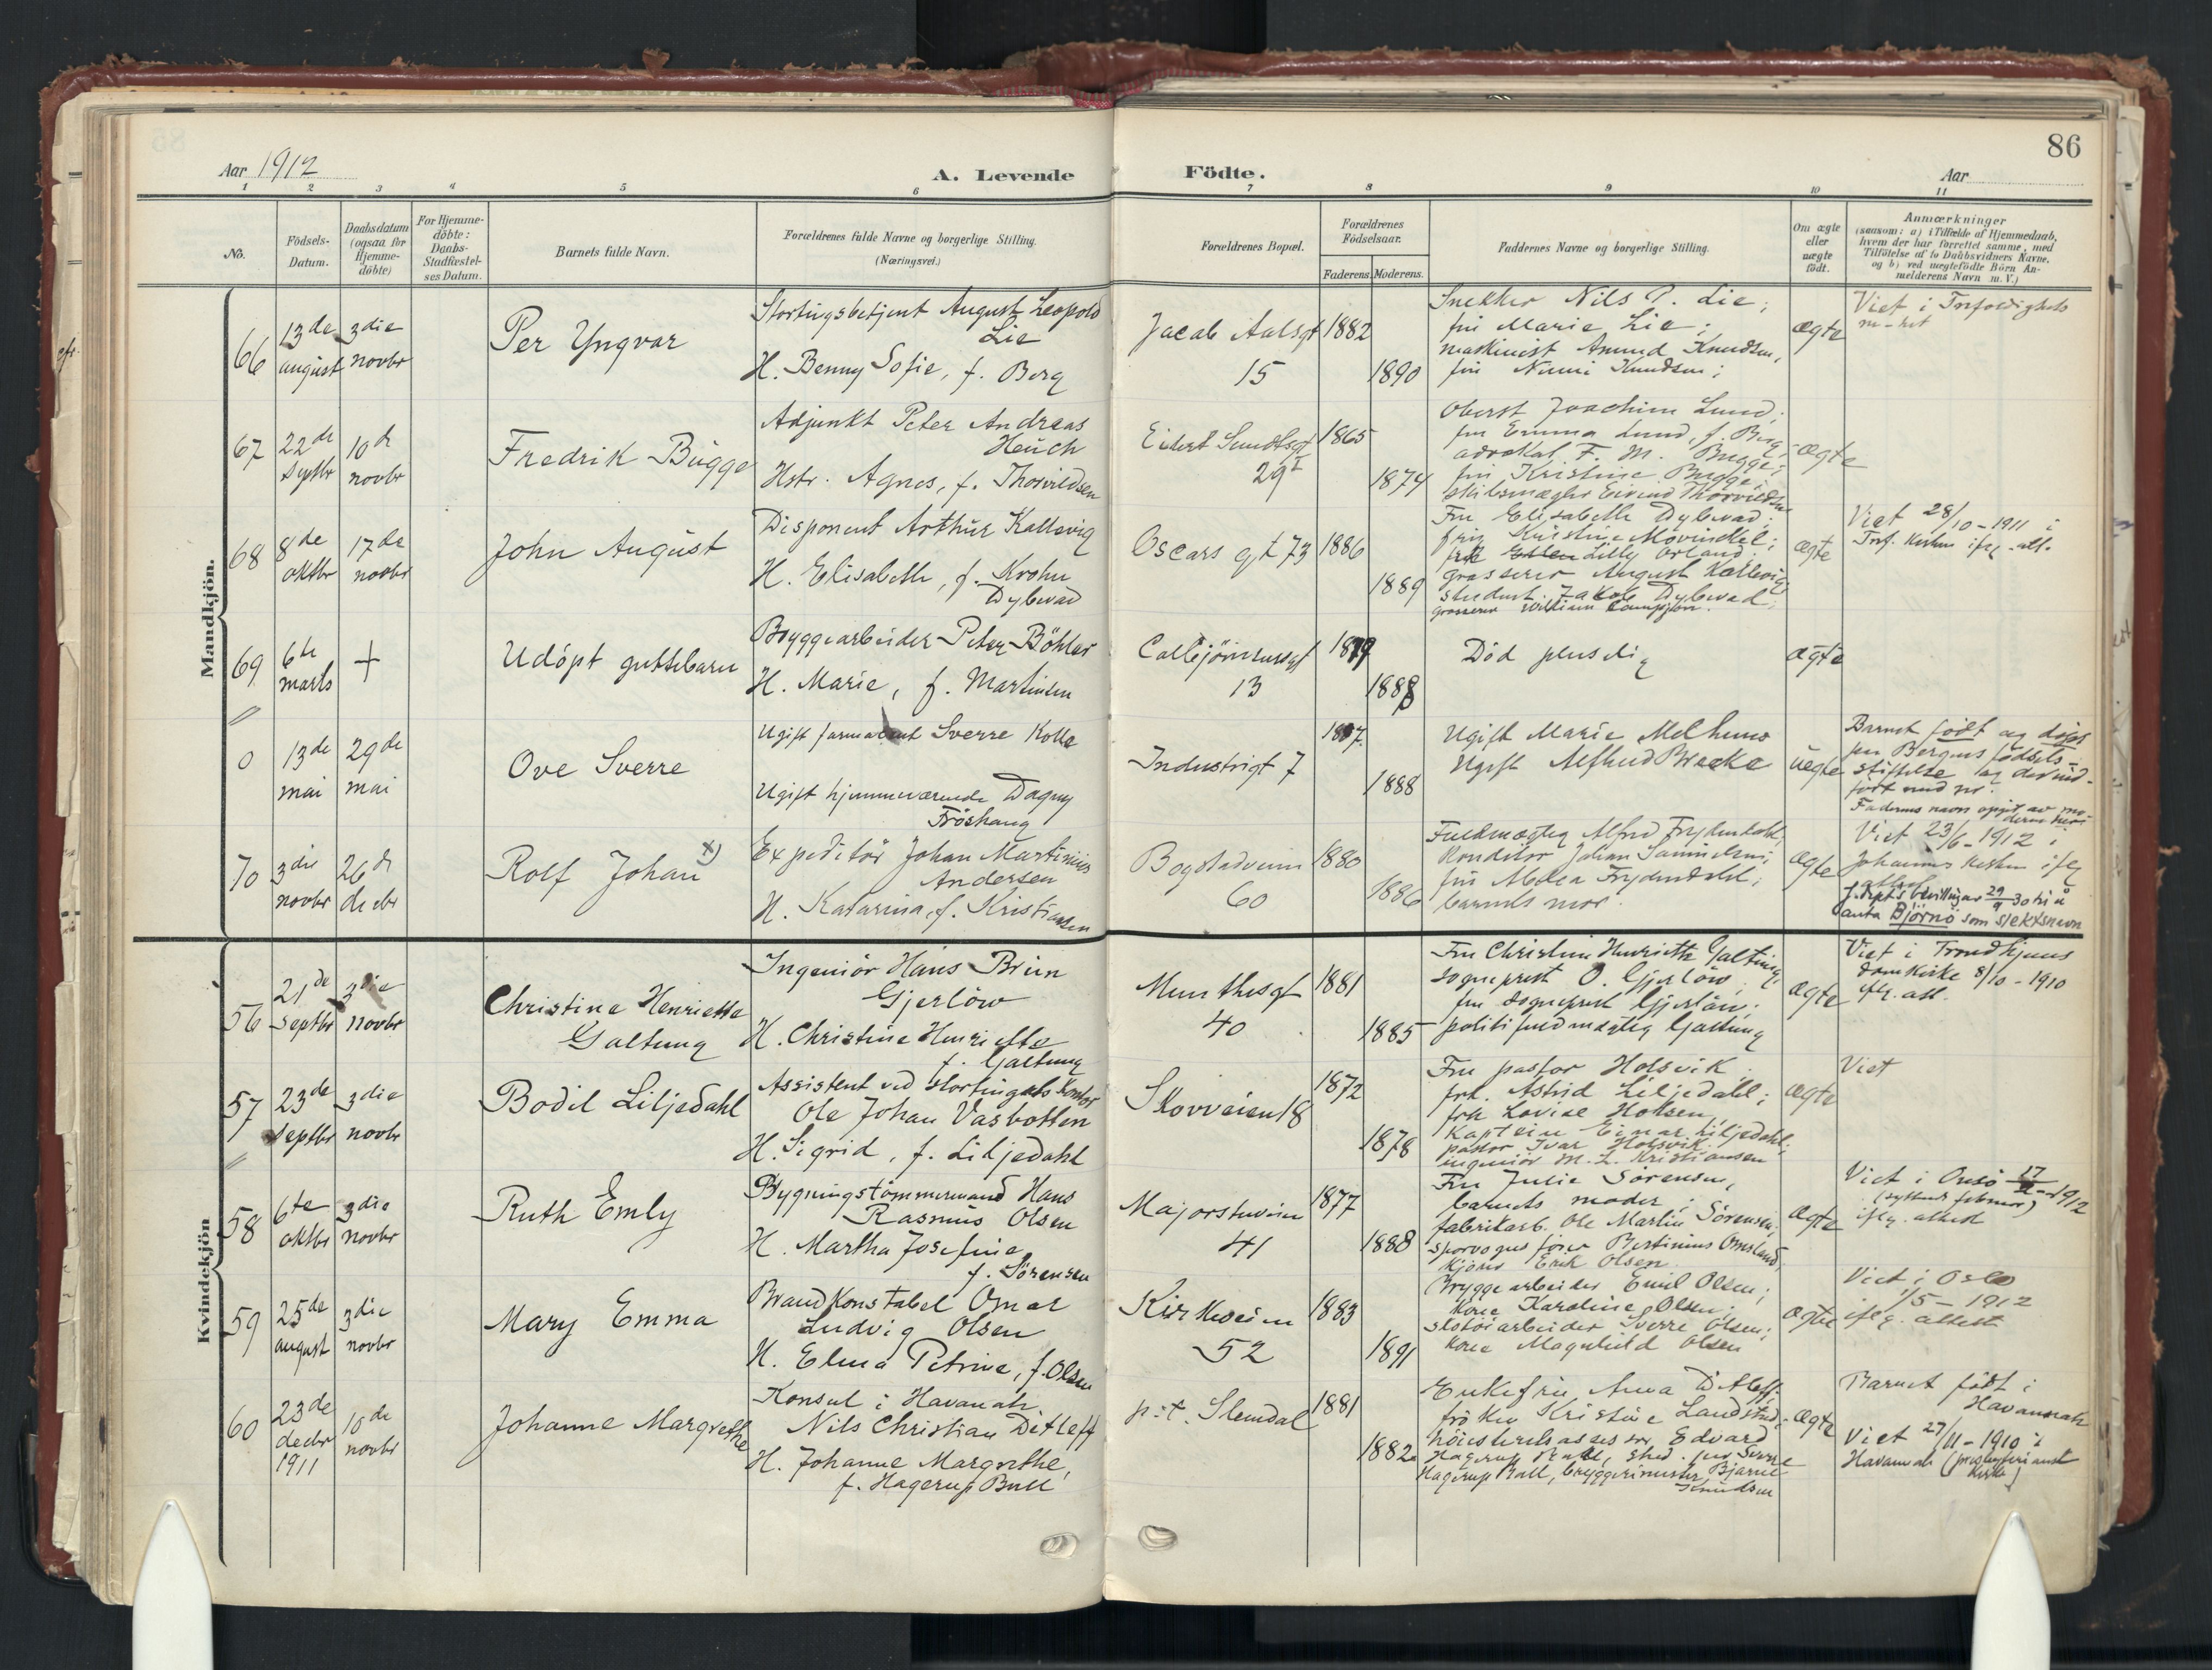 86
Aar 1912
A. Levende
Födte.
Aar
1 2 3 4 5 6 7 8 9 10 11
No.
Födsels-
Datum.
Daabsdatum
(ogsaa for
Hjemme-
döbte)
For Hjemme-
döbte:
Daabs-
Stadfæstel-
ses Datum.
Barnets fulde Navn.
Forældrenes fulde Navne og borgerlige Stilling.
(Næringsvei.)
Forældrenes Bopæl.
Forældrenes
Födselsaar.
Faderens. Moderens.
Faddernes Navne og borgerlige Stilling.
Om ægte
eller
uægte
födt.
Anmærkninger
(saasom: a) i Tilfælde af Hjemmedaab,
hvem der har forrettet samme, med
Tilföielse af to Daabsvidners Navne,
og b) ved uægtefödte Börn An-
melderens Navn m. V.)
Mandkjön.
66
13de
august
3die
novbr
Per Yngvar
Stortingsbetjent August Leopold
Lie
H. Benny Sofie, f. Berg
Jacob Aalsgt
15
1882
1890
Snekker Nils P. Lie;
fru Marie Lie;
maskinist Amund Knudsen,
fru Nunni Knudsen;
ægte
Viet i Trefoldigheds
67
22de
septbr
10de
novbr
Fredrik Bugge
Adjunkt Peter Andreas
Heuch
Hstr. Agnes, f. Thorvildsen
Eilert Sundtsgt
29 I
1865
1874
Oberst Joachim Lund;
fru Emma Lund, f. Berg;
advokat F. M. Bugge;
fru Kristine Bugge;
skibsmægler Eivind Thorvildsen
ægte
68
8de
oktbr
17de
novbr
John August
Disponent Arthur Kallevig
H. Elisabeth, f. Krohn
Dybwad
Oscars gt 73
1886
1889
Fru Elisabeth Dybwad;
frk Lilly Orland
grosserer August Kallevig
student Jakob Dybwad;
grosserer William
ægte
Viet 28/10-1911 i
Tref. kirken ifg. att.
69
6te
marts
+
Udöpt guttebarn
Byggearbeider Peter Böhler
H. Marie, f. Martinsen
Colbjörnsensgt
13
1879
1888
Död pludselig
ægte
0
13de
mai
29de
mai
Ove Sverre
Ugift farmaceut Sverre Kolle
Ugift hjemmeværende Dagny
Fröshaug
Industrigt 7
1887
1888
Ugift Marie Melhuus
Ugift Alfhild Brække
uegte
Barnet födt og döpt
paa Bergens födsels-
stiftelse og der ind-
fört med nr.
Faderens navn opgit av mo-
70
3die
novbr
26de
decbr
Rolf Johan x)
Expeditör Johan Martinius
Andersen
H. Katarina, f. Kristiansen
Bogstadveien
60
1880
1886
Fuldmægtig Alfred Frydendahl,
Konditor Johan Samuelsen;
fru Frydendahl;
barnets mor
ægte
Viet 23/6-1912 i
Johannes kirken ifg
attest
J.dept's bevilling av 29/9 30 til å
anta Björnö som slektsnavn
Kvindekjön
56
21de
septbr
3die
novbr
Christine Henriette
Galtung
Ingeniör Hans Brun
Gjerlöw
H. Christine Henriette
f. Galtung
Munthesgt
40
1881
1885
Fru Christine Henriette Galtung,
sogneprest O. Gjerlöw;
fru sogneprest Gjerlöw;
politifuldmægtig Galtung
ægte
Viet i Trondhjems
domkirke 8/10-1910
ifg. att.
57
23de
septbr
3die
novbr
Bodil Liljedahl
Assistent ved stortingets kontor
Ole Johan Vasbotten
H. Sigrid, f. Liljedahl
Skovveien 18
1872
1878
Fru pastor Holsvik
frk. Astrid Liljedahl;
frk Lovise Holsen,
Kaptein Einar Liljedahl;
pastor Ivar Holsvik
ingeniör M. L. Kristiansen
ægte
Viet
58
6te
oktbr
3die
novbr
Ruth Emly
Bygningstömmermand Hans
Rasmus Olsen
H. Martha Josefine
f. Sörensen
Majorstuvein
41
1877
1888
Fru Julie Sörensen,
barnets moder;
fabrikarb. Ole Martin Sörensen;
sporvogns förer Bertinius Omsland,
kjörer Erik Olsen
ægte
Viet i Onsö 17/2-1912
(syttende februar)
ifg. attest
59
25de
august
3die
novbr
Mary Emma
Brandkonstabel Omar
Ludvig Olsen
H. Elma Petrine, f. Olsen
Kirkeveien
52
1883
1891
Bryggearbeider Emil Olsen;
kone Karoline Olsen;
skotöiarbeider Sverre Olsen;
kone Magnhild Olsen
ægte
Viet i Oslo
1/5-1912
ifg. attest
60
23de
decbr
1911
10de
novbr
Johanne Margrethe
Konsul i Havanah
Nils Christian Ditleff
H. Johanne Margrethe,
f. Hagerup Bull
p.t. Slemdal
1881
1882
Enkefru Anna Ditleff;
fröken Kristine Landstad;
höiesteretsassessor Edvard
Hagerup Bull, stud. jur Sverre
Hagerup Bull, bryggerimester Bjarne
Knudsen
ægte
Barnet födt i
Havannah
Viet 27/11-1910 i
Havannah (presbyterianst
kirke)